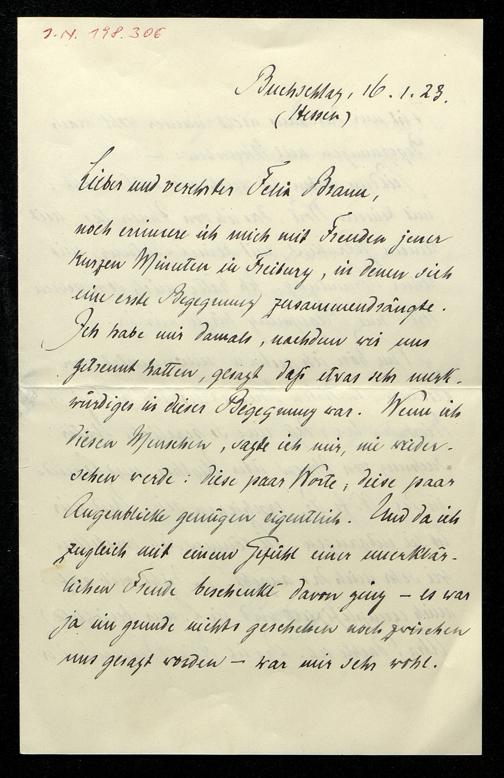 I.N. 198.306
Buchschlag, 16.1.23.
(Hessen)
Lieber und verehrter Felix Braun,
noch erinnere ich mich mit Freuden jener
kurzen Minuten in Freiburg, in denen sich
eine erste Begegnung zusammendrängte.
Ich habe mir damals, nachdem wir uns
getrennt hatten, gesagt daß etwas sehr merk-
würdiges in dieser Begegnung war. Wenn ich
diesen Menschen, sagte ich mir, nie wieder-
sehen werde: diese paar Worte, diese paar
Augenblicke genügen eigentlich. Und da ich
zugleich mit einem Gefühl einer unerklär-
lichen Freude beschenkt davon ging – es war
ja im grunde nichts geschehen noch zwischen
uns gesagt worden – war mir sehr wohl.